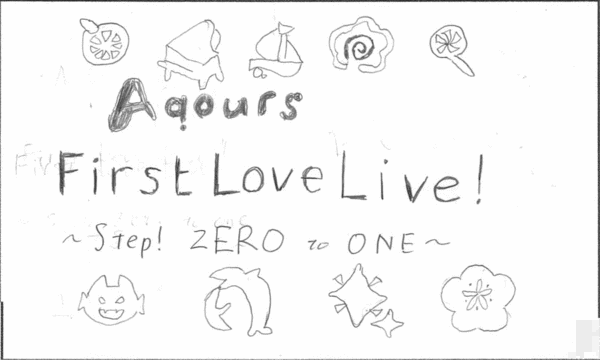 Aqours
First LoveLive!
~Step! ZERO to ONE~